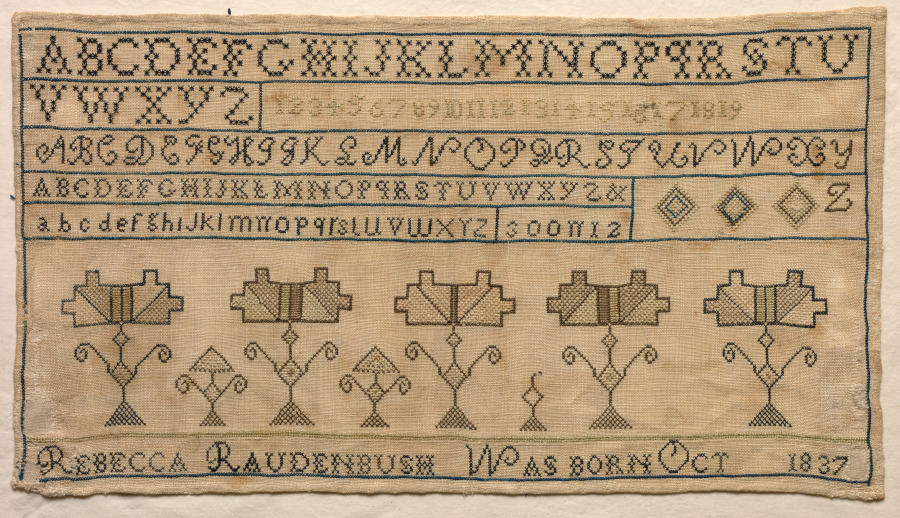 ABCDEFGHIJKLMNOPQRSTU
VWXYZ 12345678910111213141516171819
ABCDEFGHIJKLMNOPQRSTUVWXY
ABCDEFGHIJKLMNOPQRSTUVWXYZ& Z
abcdefghijklmnopqrstuvwxyz soon12
REBECCA RAUDENBUSH WAS BORN OCT 1837